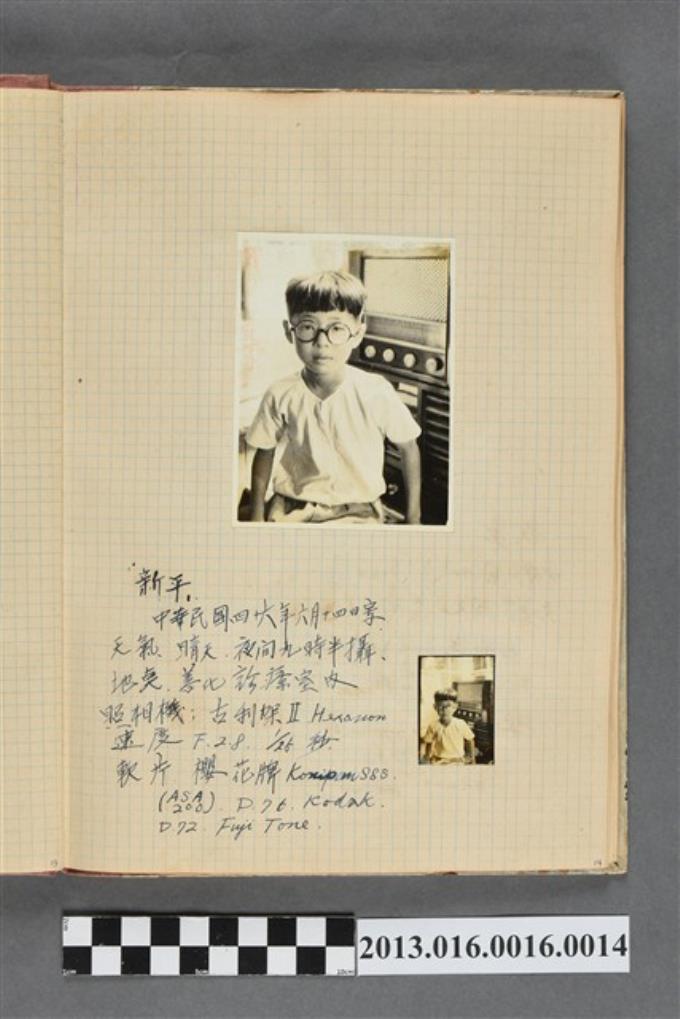 新平.
中華民國四十六年六月十四日寫
天氣 晴天. 夜间九時半攝.
地点. 善化診療室内
照相機: 古利柴II Hexanon
速度 F.2.8. 1/25 秒
軟片 櫻花牌 Konipan SSS.
(ASA 200). D.76. Kodak.
D.72. Fuji Tone.
13
14
0cm
5cm
10cm
2013.016.0016.0014